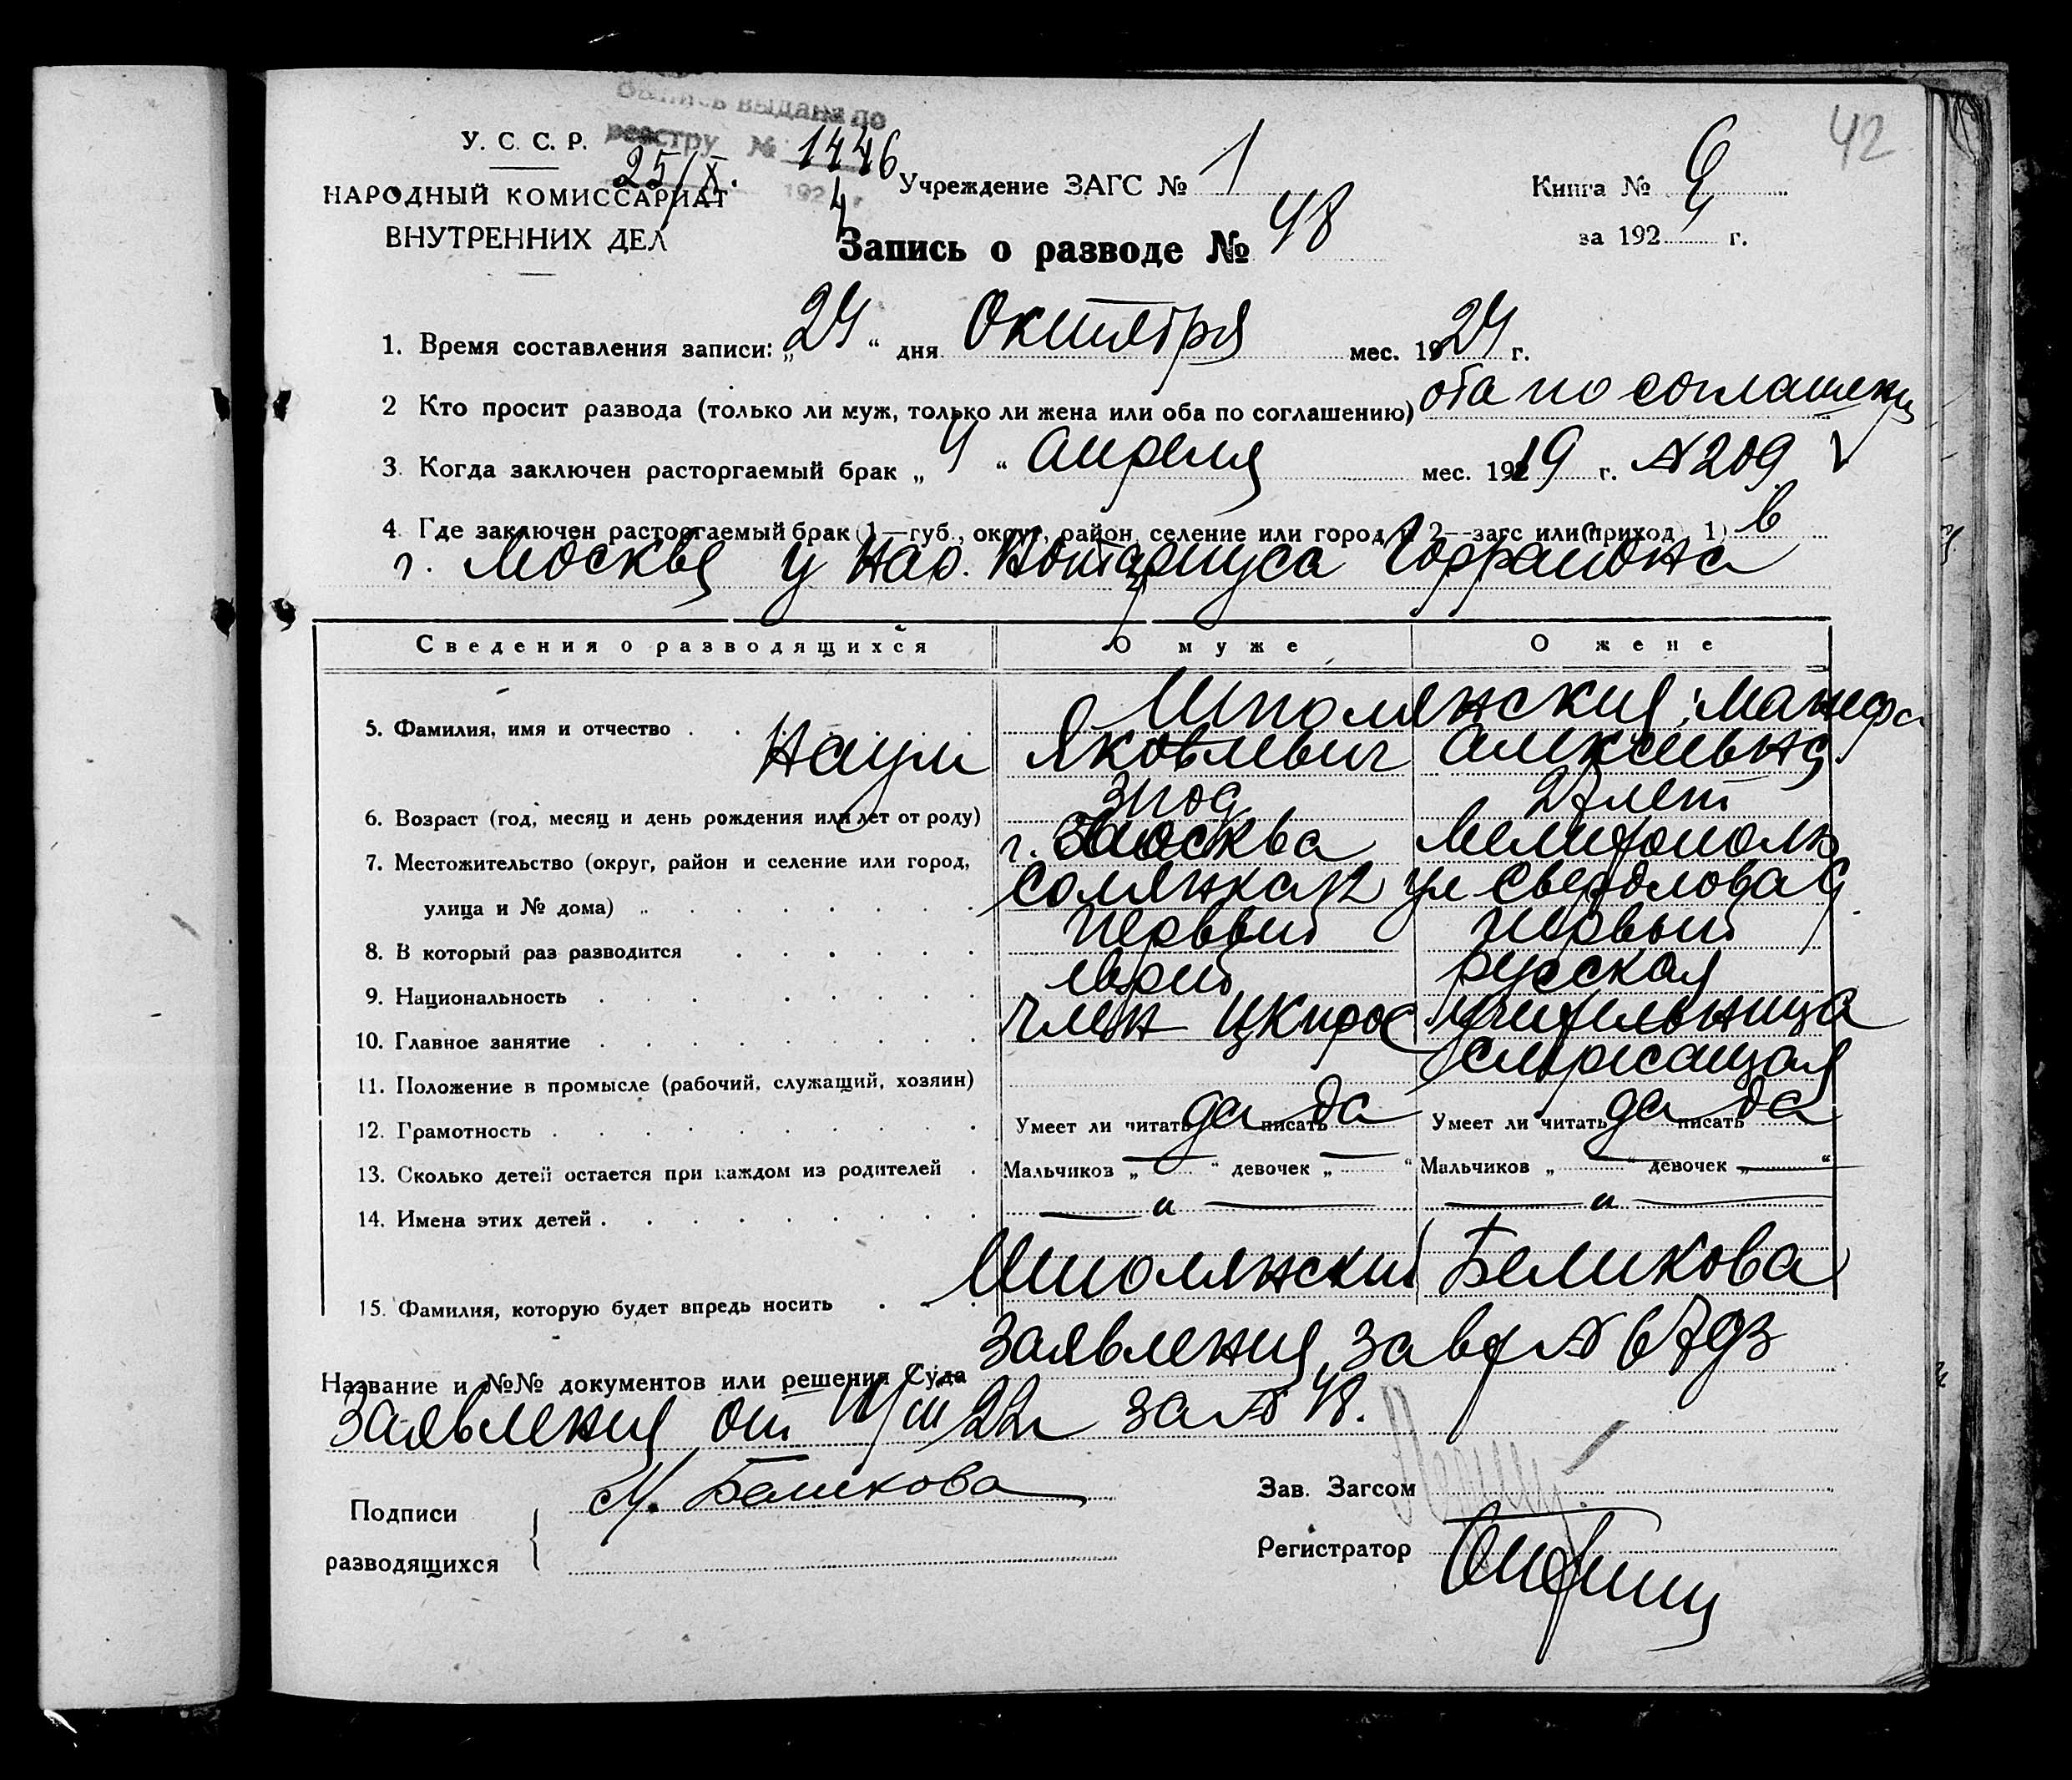 42
выдана по
реестру № 1446
25/X. 1924 г.
У. С. С. Р.
НАРОДНЫЙ КОМИССАРИАТ
ВНУТРЕННИХ ДЕЛ
Учреждение ЗАГС № 1
Книга №
за 192 г.
Запись о разводе № 48
1. Время составления записи: „24“ дня Октября мес. 1924 г.
2 Кто просит развода (только ли муж, только ли жена или оба по соглашению) оба по соглашению
3. Когда заключен расторгаемый брак „4“ Апреля мес. 1919 г. № 209
4. Где заключен расторгаемый брак (1—губ., округ, район, селение или город и 2—загс или приход) 1) в
г. Москве у Нар. Нотариуса
Сведения о разводящихся О муже О жене
5. Фамилия, имя и отчество Шполянский Наум Яковлевич
6. Возраст (год, месяц и день рождения или лет от роду) 27 лет
7. Местожительство (округ, район и селение или город, г. Москва Мелитополь
улица и № дома) Солянка 12 ул Свердлова
8. В который раз разводится первый первый
9. Национальность еврей русская
10. Главное занятие член учительница
11. Положение в промысле (рабочий, служащий, хозяин) служащая
12. Грамотность Умеет ли читать да писать да Умеет ли читать да писать да
13. Сколько детей остается при каждом из родителей Мальчиков „ — “ девочек „ — “ Мальчиков „ — “ девочек „ — “
14. Имена этих детей — „ — — „ —
15. Фамилия, которую будет впредь носить Шполянский Беликова
Название и №№ документов или решения Суда заявления,
Заявления от за № 48.
Подписи
разводящихся
М. Беликова
Зав. Загсом
Регистратор